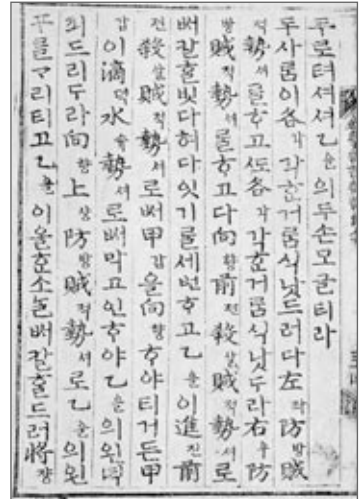 구로텨셔셔乙을의두손모글티라
두사ᄅᆞᆷ이各각각ᄒᆞᆫ거름식낫드러다左좌防방賊
적勢셰ᄅᆞᆯᄒᆞ고ᄯᅩ各각각ᄒᆞᆫ거름식낫ᄃᆞ라右우防
방賊적勢셰ᄅᆞᆯᄒᆞ고다向향前젼殺살賊적勢셰로
ᄡᅥ갈흘빗다혀다잇기ᄅᆞᆯ세번ᄒᆞ고乙을이進진前
젼殺살賊적勢셰로ᄡᅥ甲갑을向향ᄒᆞ야티거든甲
갑이滴뎍水슈勢셰로ᄡᅥ막고인ᄒᆞ야乙을의왼녁
픠드리ᄃᆞ라向향上샹防방賊적勢셰로乙을의왼
구ᄅᆞᆯᄀᆞ리티고乙을이올ᄒᆞᆫ소ᄂᆞᆯᄡᅥ갈흘드러將쟝